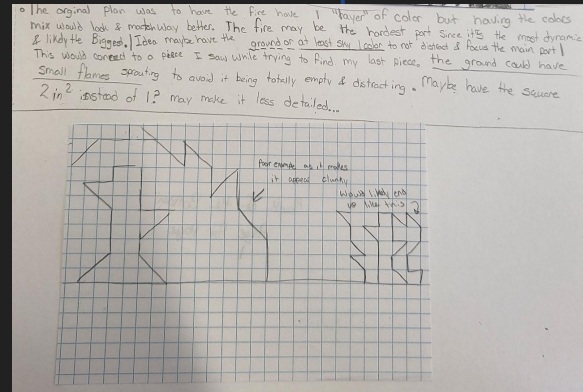 • The orginal plan was to have the fire have 1 "layer" of color but having the colors
mix would look & match way better. The fire may be the hardest part since it's the most dynamic
& likely the Biggest. Idea maybe have the ground or at least sky 1 color to not distract & focus the main part!
This would connect to a peice I saw while trying to find my last piece. the ground could have
small flames sprouting to avoid it being totally empty & distracting. Maybe have the square
2 in² instead of 1? may make it less detailed...
Poor example as it makes
it appear clunky
Would likely end
up like this